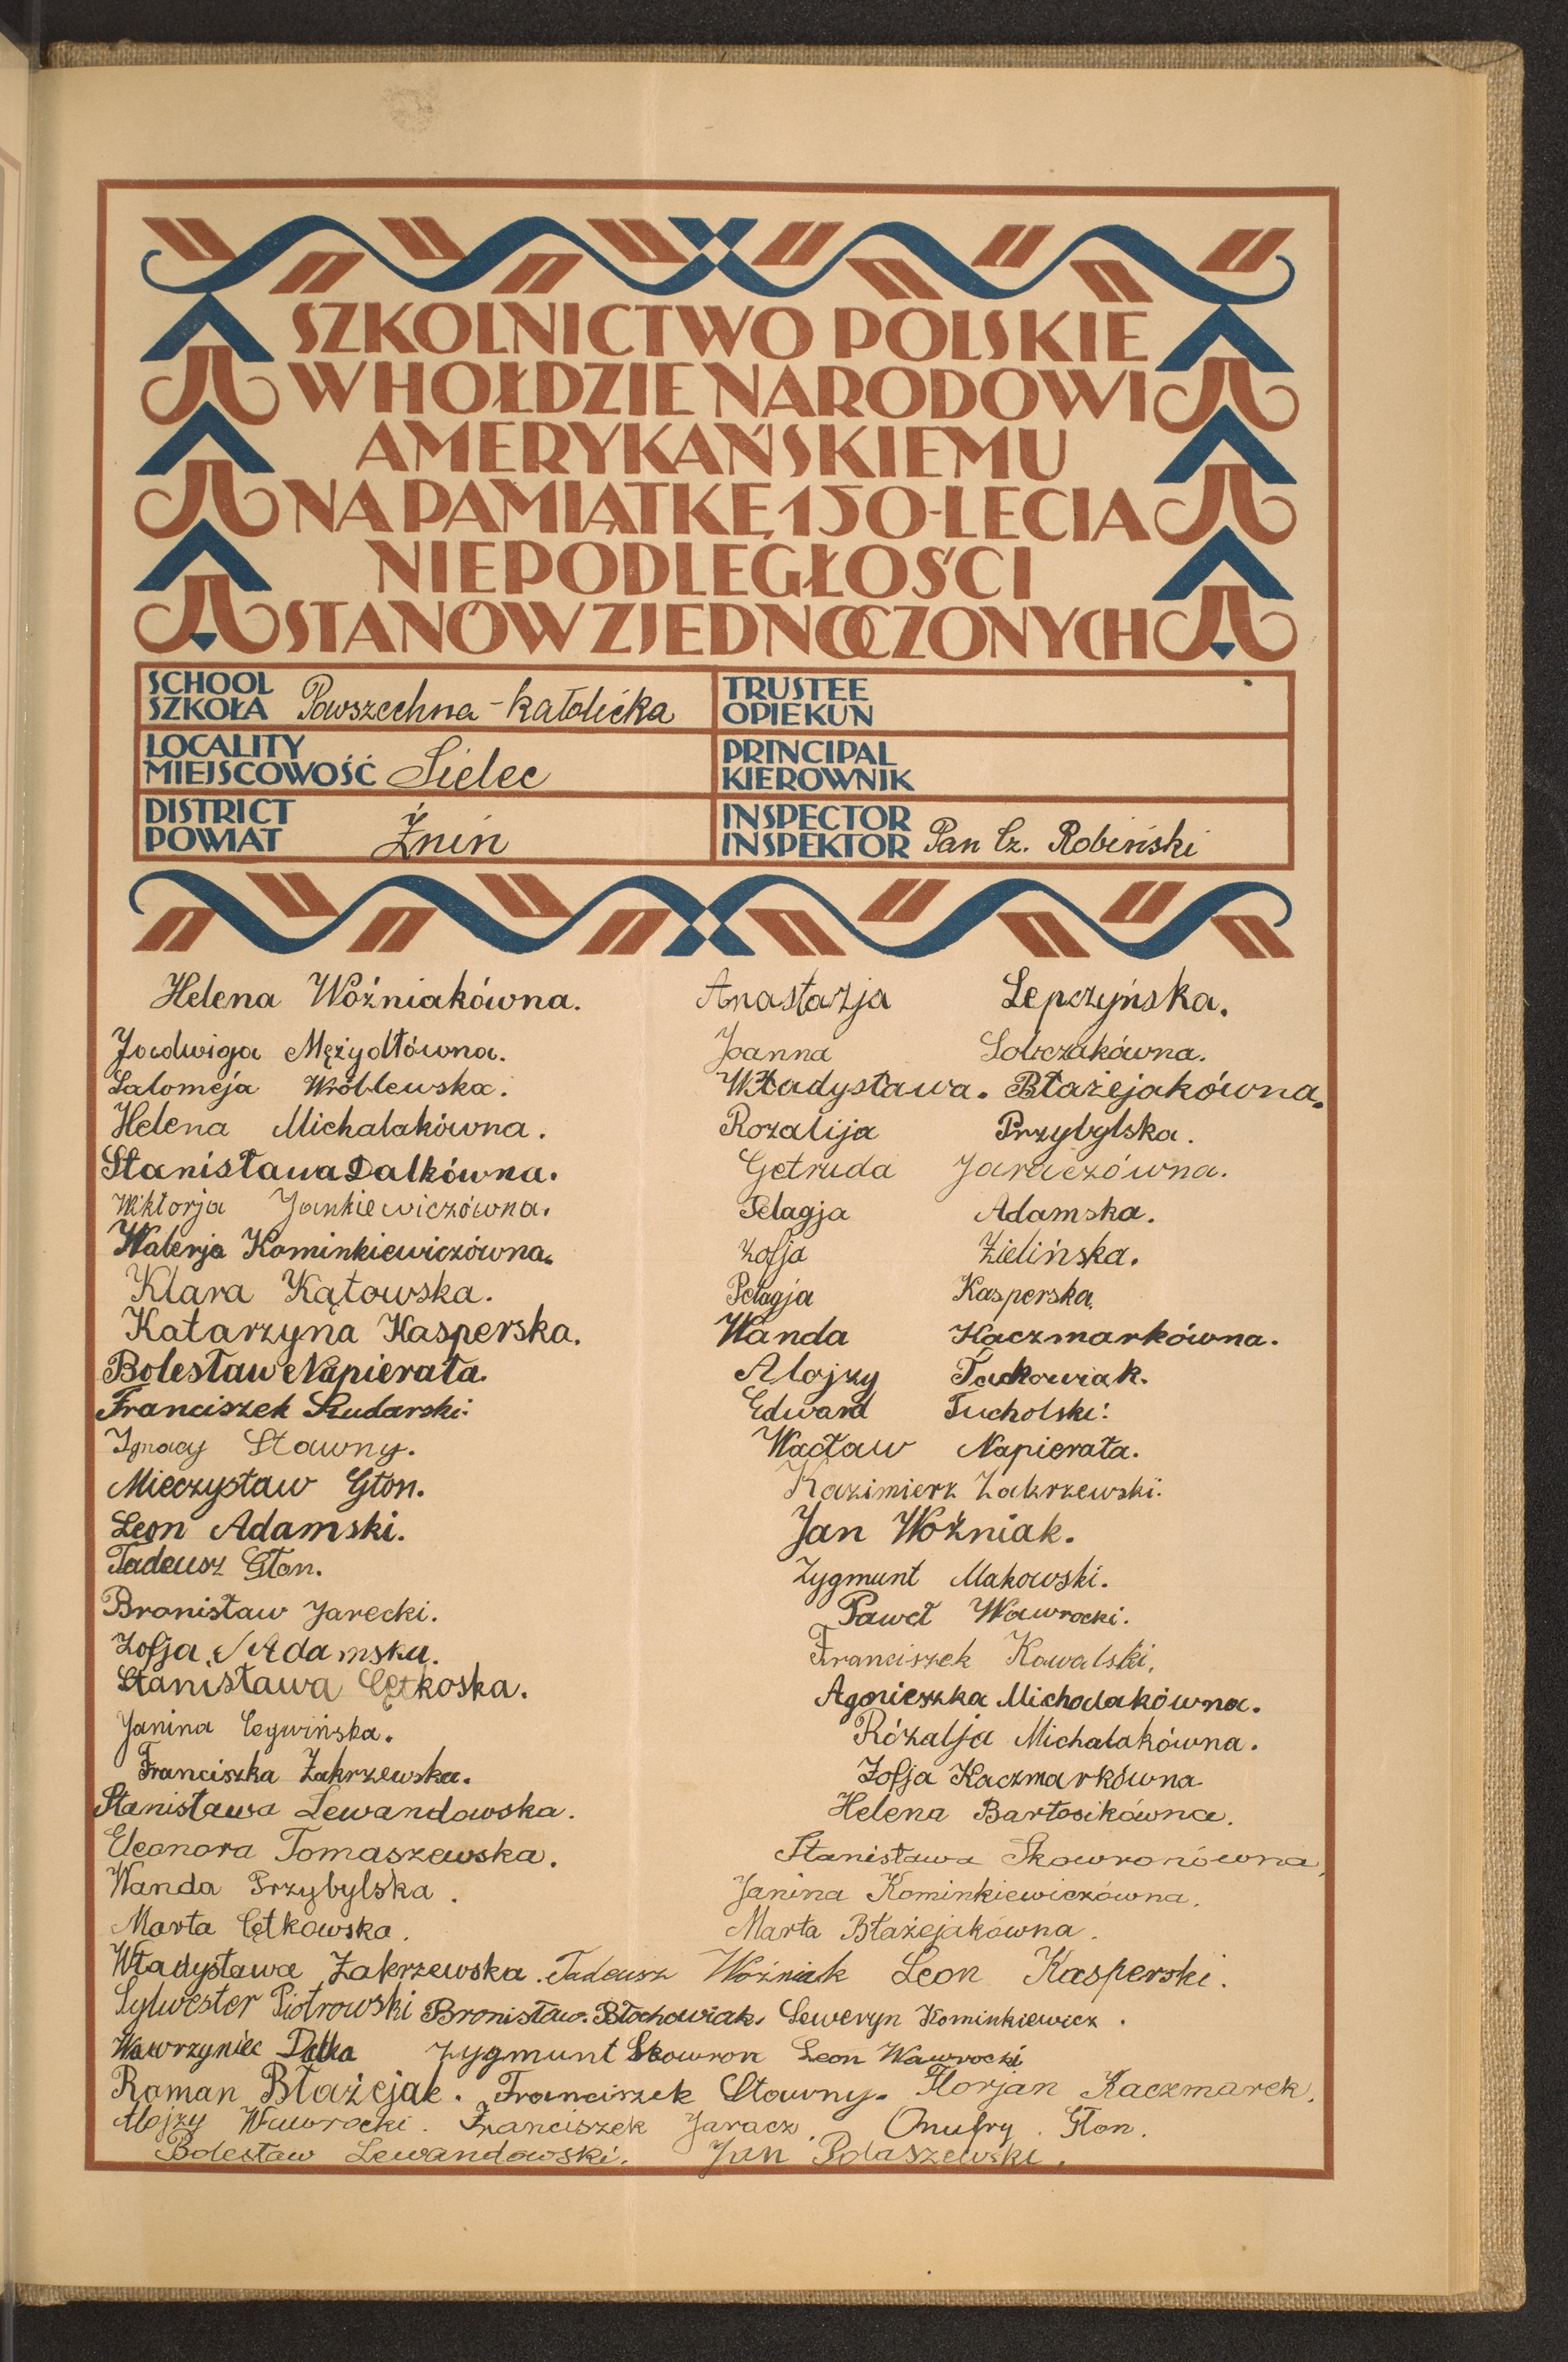 SZKOLNICTWO POLSKIE
W HOŁDZIE NARODOWI
AMERYKAŃSKIEMU
NA PAMIĄTKĘ 150-LECIA
NIEPODLEGŁOŚCI
STANÓW ZJEDNOCZONYCH
SCHOOL
SZKOŁA Powszechna - katolicka
TRUSTEE
OPIEKUN
LOCALITY
MIEJSCOWOŚĆ Sielec
PRINCIPAL
KIEROWNIK
DISTRICT
POWIAT Żnin
INSPECTOR
INSPEKTOR Pan Cz. Robiński
Helena Woźniakówna. Anastazja Lepczyńska.
Jadwiga Mężydłówna. Joanna Sobczakówna.
Salomeja Wróblewska. Władysława. Błażejakówna.
Helena Michalakówna. Rozalija Przybylska.
Stanisława Dalkówna. Getruda Jaraczówna.
Wiktorja Jankiewiczówna. Pelagja Adamska.
Walerja Kominkiewiczówna. Zofja Zielińska.
Klara Kątowska. Pelagja Kasperska.
Katarzyna Kasperska. Wanda Kaczmarkówna.
Bolesław Napierała. Alojzy Tackowiak.
Franciszek Rudarski. Edward Tucholski.
Ignacy Sławny. Wacław Napierała.
Mieczysław Głon. Kazimierz Zakrzewski.
Leon Adamski. Jan Woźniak.
Tadeusz Głon. Zygmunt Makowski.
Bronisław Jarecki. Paweł Wawrocki.
Zofja Adamska. Franciszek Kowalski.
Stanisława Cętkoska. Agnieszka Michalakówna.
Janina Cegwińska. Rózalja Michalakówna.
Franciszka Zakrzewska. Zofja Kaczmarkówna
Stanisława Lewandowska. Helena Bartosikówna.
Eleonora Tomaszewska. Stanisława Skowronówna.
Wanda Przybylska. Janina Kominkiewiczówna.
Marta Cętkowska. Marta Błażejakówna.
Władysława Zakrzewska. Tadeusz Woźniak Leon Kasperski.
Sylwester Piotrowski Bronisław. Błochowiak. Seweryn Kominkiewicz.
Wawrzyniec Dalka Zygmunt Skowron Leon Wawrocki
Roman Błażejak. Franciszek Sławny. Florjan Kaczmarek.
Alojzy Wawrocki. Franciszek Jaracz. Onufry. Głon.
Bolesław Lewandowski. Jan Polaszewski.